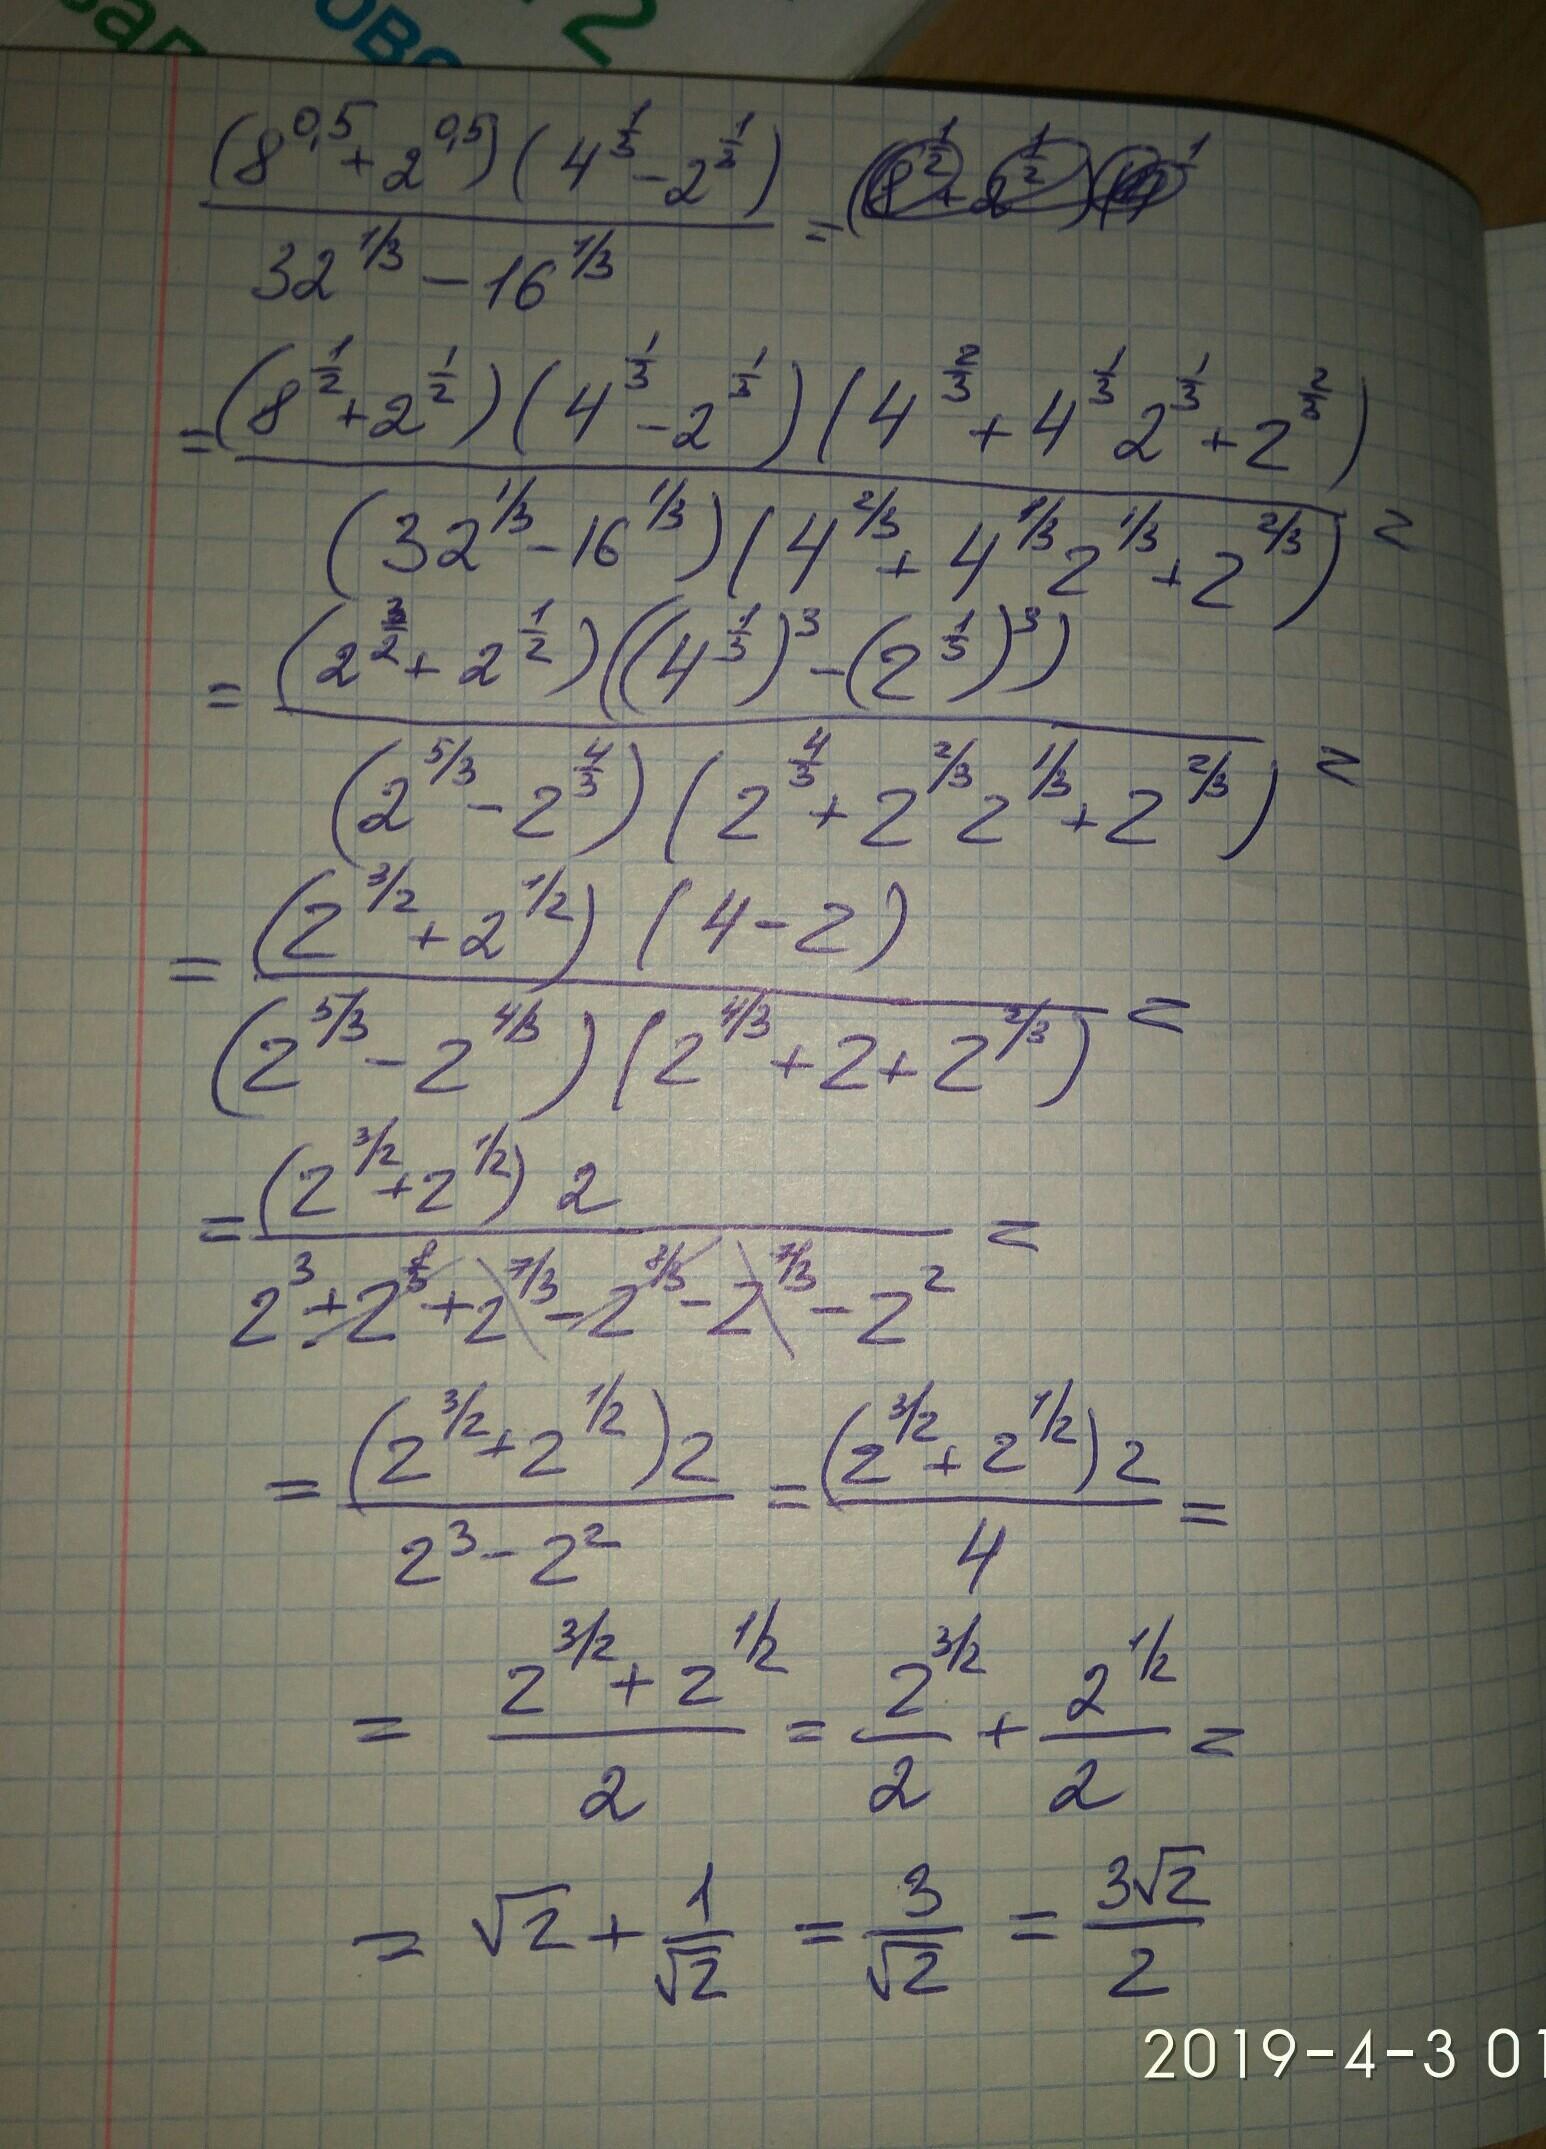 2
(8^{0,5} + 2^{0,5})(4^{1/3} - 2^{1/3}) / (32^{1/3} - 16^{1/3}) =
= (8^{1/2} + 2^{1/2})(4^{1/3} - 2^{1/3})(4^{2/3} + 4^{1/3} 2^{1/3} + 2^{2/3}) / (32^{1/3} - 16^{1/3})(4^{2/3} + 4^{1/3} 2^{1/3} + 2^{2/3}) =
= (2^{3/2} + 2^{1/2})((4^{1/3})^3 - (2^{1/3})^3) / (2^{5/3} - 2^{4/3})(2^{4/3} + 2^{2/3} 2^{1/3} + 2^{2/3}) =
= (2^{3/2} + 2^{1/2})(4 - 2) / (2^{5/3} - 2^{4/3})(2^{4/3} + 2 + 2^{2/3}) =
= (2^{3/2} + 2^{1/2}) 2 / 2^3 + 2^{8/3} + 2^{7/3} - 2^{8/3} - 2^{7/3} - 2^2 =
= (2^{3/2} + 2^{1/2}) 2 / 2^3 - 2^2 = (2^{3/2} + 2^{1/2}) 2 / 4 =
= 2^{3/2} + 2^{1/2} / 2 = 2^{3/2} / 2 + 2^{1/2} / 2 =
= √2 + 1/√2 = 3/√2 = 3√2/2
2019-4-3 01